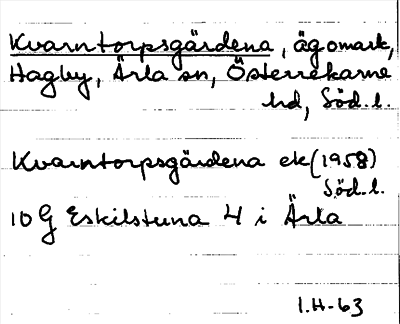 Kvarntorpsgärdena, ägomark,
Hagby, Ärla sn, Österrekarne
hd, Söd.l.
Kvarntorpsgärdena ek(1958)
Söd.l.
10G Eskilstuna 4 i Ärla
I.H-63